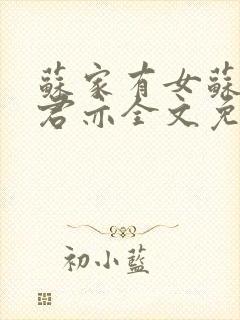 蘇家有女蘇
君亦全文免
初小藍